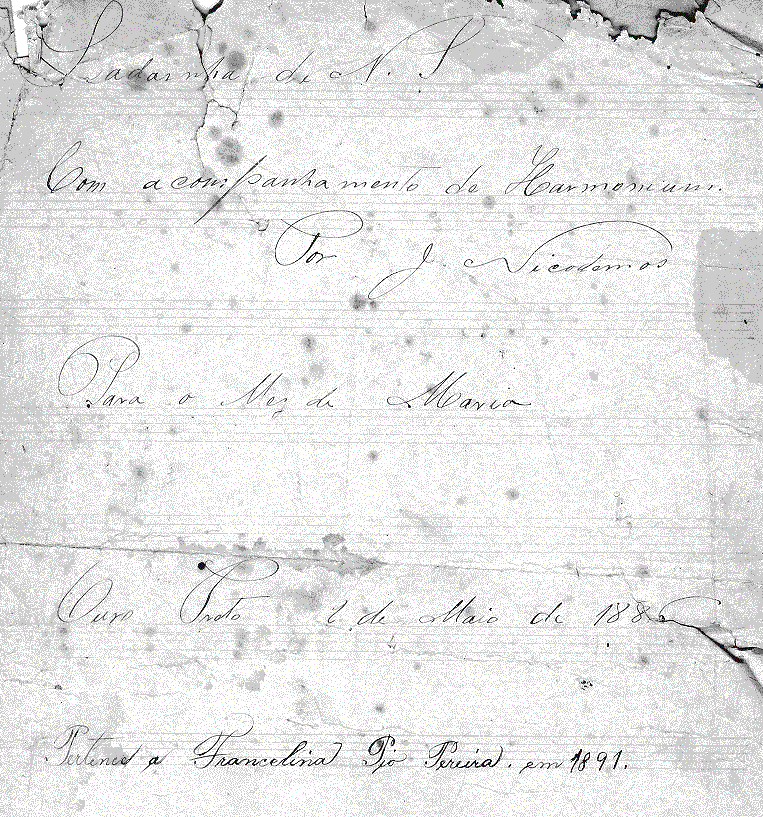 Ladainha de N. S
Com acompanhamento de Harmonium.
Por J. Nicodemos
Para o Mez de Maria
Ouro Preto 2 de Maio de 188
Pertence a Francelina Pio Pereira. em 1891.